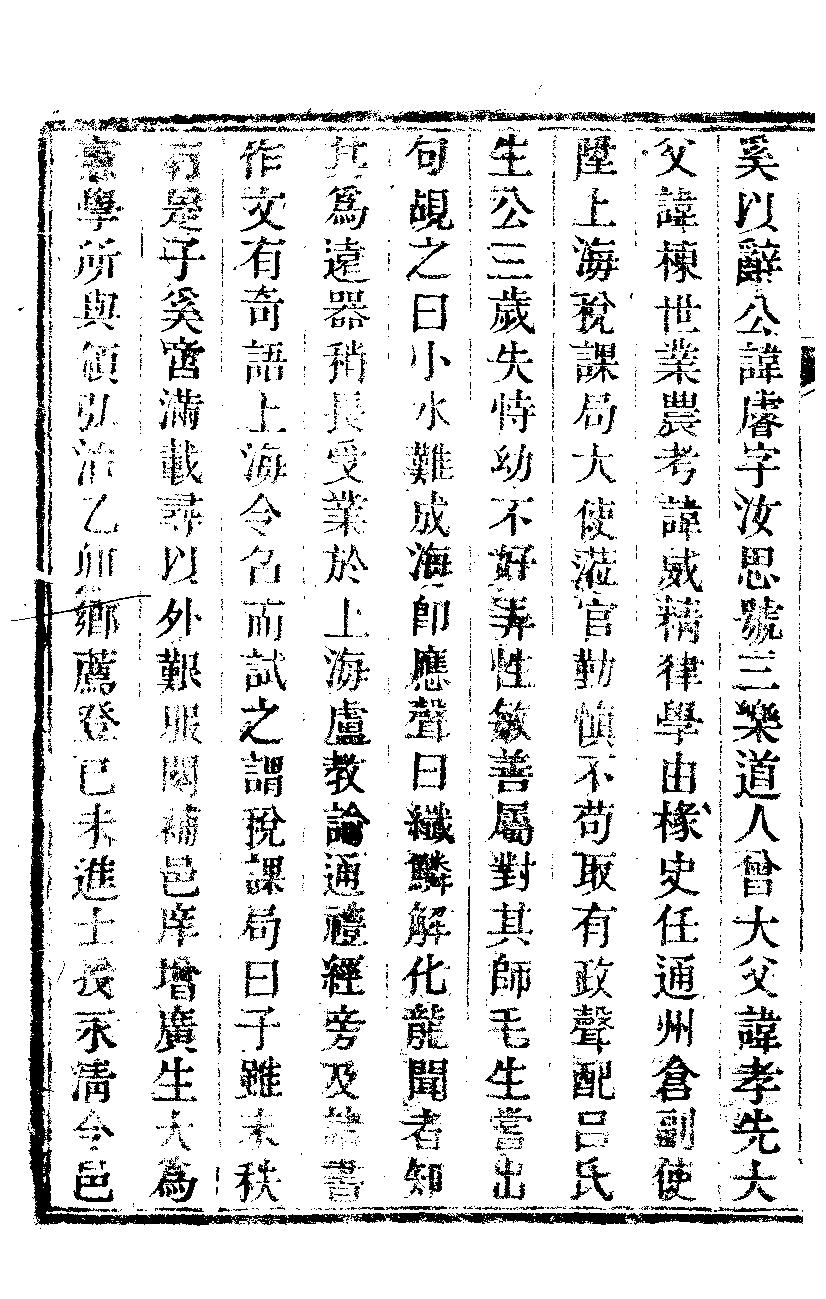 奚以辭公諱濬字汝思號三樂道人曾大父諱孝先大
父諱棟世業農考諱威精律學由椽史任通州倉副使
陞上海稅課局大使蒞官勤慎不苟取有政聲配呂氏
生公三歲失恃幼不好弄性敏善屬對其師毛生嘗出
句覘之曰小水難成海卽應聲曰纖鱗解化龍聞者知
其爲遠器稍長受業於上海盧教諭通禮經旁及諸書
作文有奇語上海令名而試之謂稅課局曰子雖末秩
有是子奚啻滿載尋以外艱服闋補邑庠增廣生大爲
憲學所與領弘治乙卯鄉薦登已未進士長永清令邑